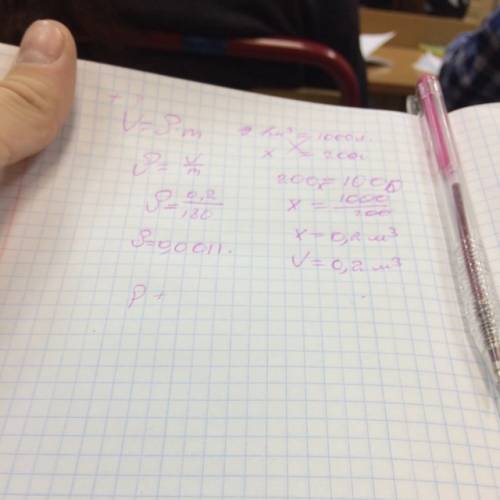 V = ρ·m
ρ = V/m
ρ = 0,2/180
ρ = 0,0011.
ρ
1м³ = 1000л.
x = 200л
200x = 1000
x = 1000/200
x = 0,2 м³
V = 0,2 м³